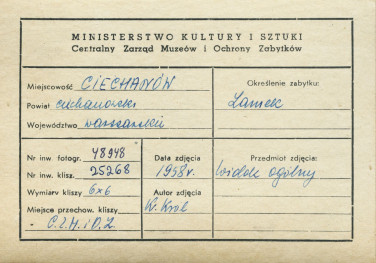 MINISTERSTWO KULTURY I SZTUKI
Centralny Zarząd Muzeów i Ochrony Zabytków
Miejscowość CIECHANÓW
Powiat ciechanowski
Województwo warszawskie
Określenie zabytku:
Zamek
Nr inw. fotogr. 48948
Nr inw. klisz. 25268
Wymiary kliszy 6x6
Miejsce przechow. kliszy
- C.Z.M.i O.Z.
Data zdjęcia
1958r.
Autor zdjęcia
K. Król
Przedmiot zdjęcia:
Widok ogólny